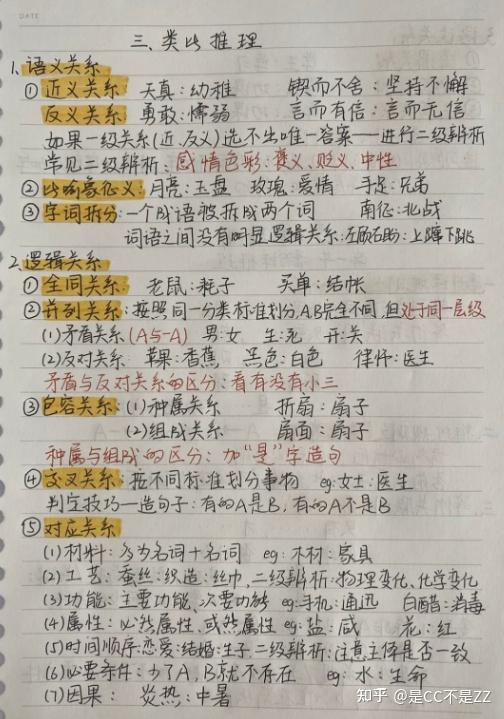 三、类比推理
1.语义关系
①近义关系：天真：幼稚 锲而不舍：坚持不懈
反义关系：勇敢：懦弱 言而有信：言而无信
如果一级关系(近、反义)选不出唯一答案——进行二级辨析
常见二级辨析：感情色彩：褒义、贬义、中性
②比喻象征义：月亮：玉盘 玫瑰：爱情 手足：兄弟
③字词拆分：一个成语被拆成两个词 南征：北战
词语之间没有明显逻辑关系：左顾右盼：上蹿下跳
2.逻辑关系
①全同关系： 老鼠：耗子 买单：结帐
②并列关系：按照同一分类标准划分，A、B完全不同，但处于同一层级
(1)矛盾关系(A与-A) 男：女 生：死 开：关
(2)反对关系 苹果：香蕉 黑色：白色 律师：医生
矛盾与反对关系的区分：看有没有小三
③包容关系：(1)种属关系 折扇：扇子
(2)组成关系 扇面：扇子
种属与组成的区分：加“是”字造句
④交叉关系：按不同标准划分事物 eg:女士：医生
判定技巧—造句子：有的A是B，有的A不是B
⑤对应关系
(1)材料：多为名词+名词 eg：木材：家具
(2)工艺：蚕丝：织造：丝巾，二级辨析：物理变化、化学变化
(3)功能：主要功能、次要功能 eg：手机：通迅 白醋：消毒
(4)属性：必然属性、或然属性 eg：盐：咸 花：红
(5)时间顺序：恋爱：结婚：生子，二级辨析：注意主体是否一致
(6)必要条件：少了A，B就不存在 eg：水：生命
(7)因果： 炎热：中暑
知乎 @是CC不是ZZ